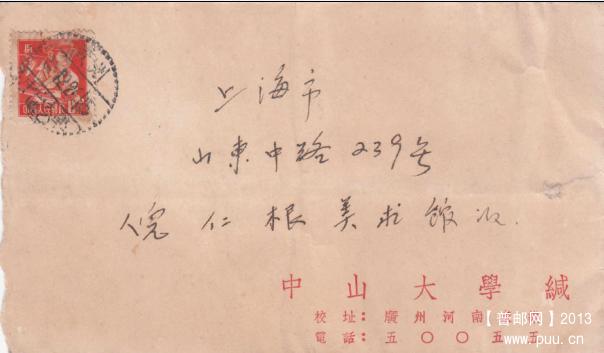 上海市
山東中路239号
倪仁根美术馆收.
中山大學緘
校址：廣州河南
電話：五〇〇五五
【普邮网】2013
www.ipuu.cn